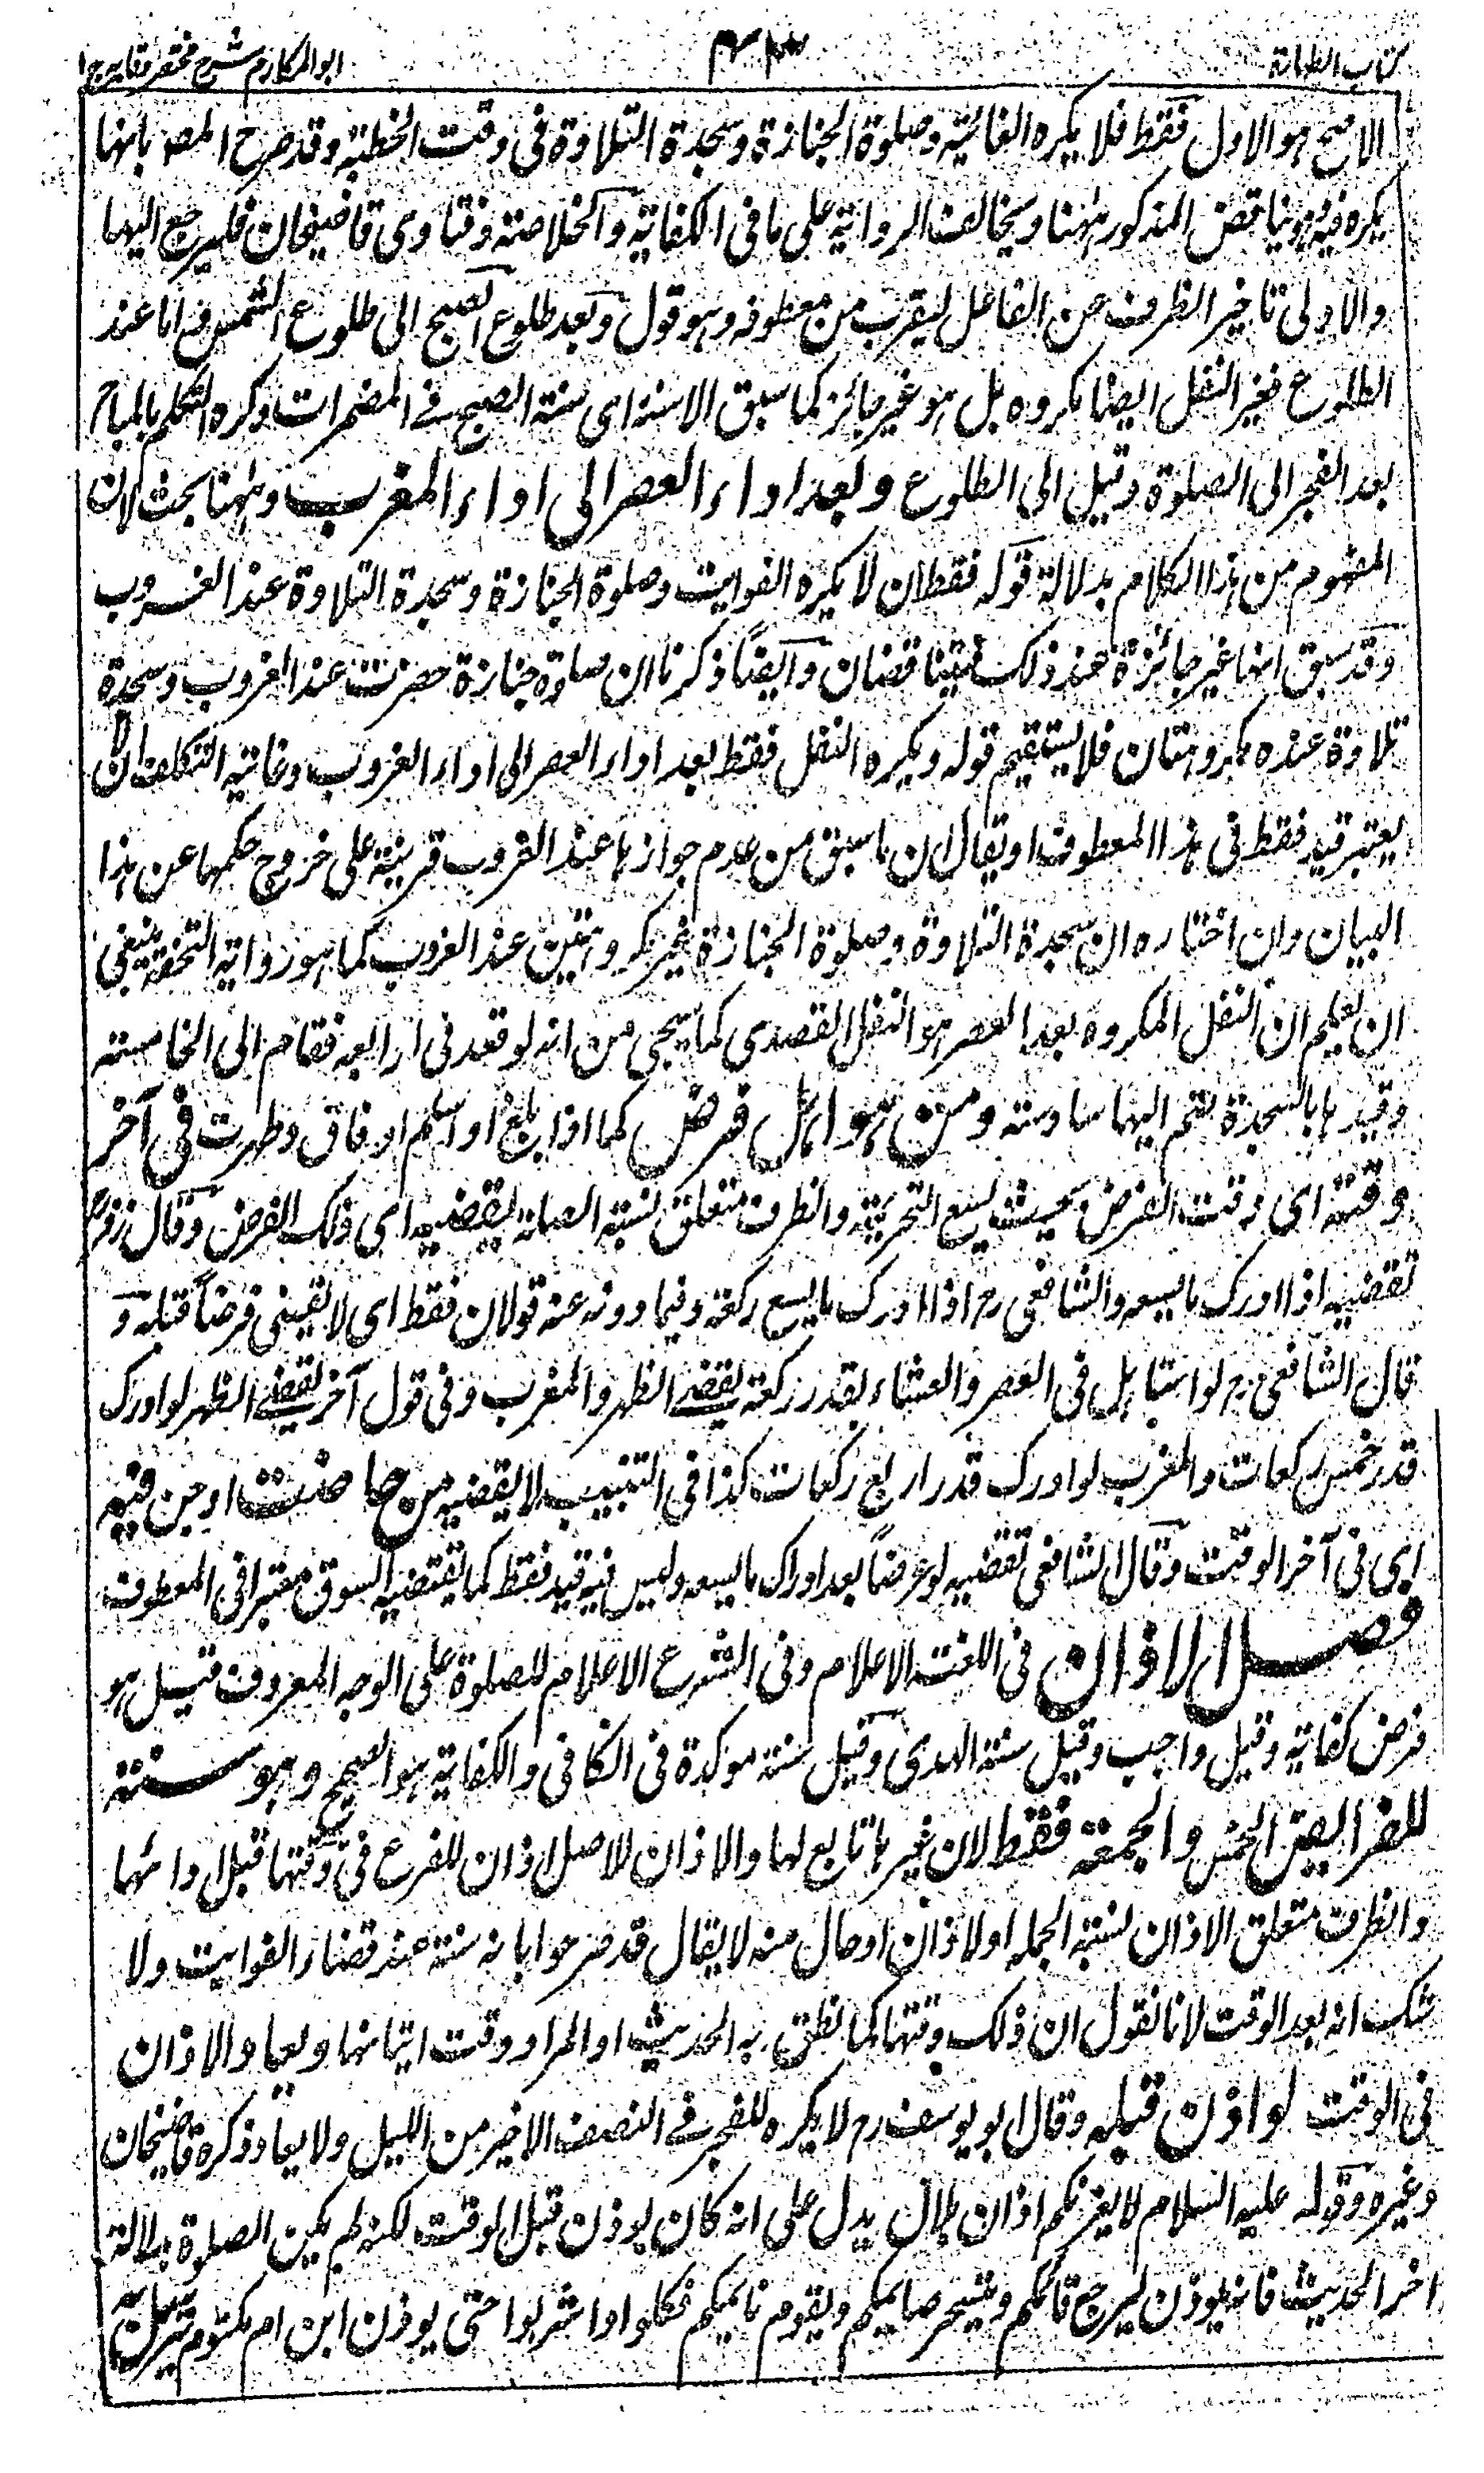 كتاب الطهارة ٤٣ ابو المكارم شرح مختصر وقايه ج ١
الاصح هو الاول فقط فلا يكره الفائتة وصلوة الجنازة وسجدة التلاوة فى وقت الخطبة وقد صرح المص بانها
يكره فيه وهو يناقض المذكور ههنا ويخالف الرواية على ما فى الكفاية والخلاصة وفتاوى قاضيخان فليرجع اليها
والاولى تاخير الظرف عن الفاعل ليقرب من معطوفه وهو قول وبعد طلوع الصبح الى طلوع الشمس واما عند
الطلوع فغير النفل ايضا مكروه بل هو غير جائز كما سبق الا سنة اى سنة الصبح فى المضمرات وكره التكلم بالمباح
بعد الفجر الى الصلوة وقيل الى الطلوع وبعد اداء العصر الى اداء المغرب وههنا بحث لان
المفهوم من هذا الكلام بدلالة قوله فقط ان لا يكره الفوايت وصلوة الجنازة وسجدة التلاوة عند الغروب
وقد سبق انها غير جائزة عند ذلك فيتناقضان وايضا ذكرنا ان صلوة جنازة حضرت عند الغروب وسجدة
تلاوة عنده مكروهتان فلا يستقيم قوله ويكره النفل فقط بعد اداء العصر الى اداء الغروب وغاية التكلف ان لا
يعتبر قيد فقط فى هذا المعطوف او يقال ان ما سبق من عدم جوازها عند الغروب قرينة على خروج حكمها عن هذا
البيان وان اختاره ان سجدة التلاوة وصلوة الجنازة غير مكروهتين عند الغروب كما هو رواية التحفة ينبغى
ان يعلم ان النفل المكروه بعد العصر هو النفل القصدى كما سيجى من انه لو قعد فى الرابعة فقام الى الخامسة
وقيدها بالسجدة يضم اليها سادسة ومن هو اهل فرض كما اذا بلغ او اسلم او فاق وطهرت فى آخر
وقته اى وقت الفرض بحيث يسع التحريمة والظرف متعلق بنسبة الصلة يقضيه اى ذلك الفرض وقال زفر رح
تقضيه اذا ادرك ما يسعه والشافعى رح اذا ادرك ما يسع ركعة وفيما دونه عنه قولان فقط اى لا يقضى فرضا قبله و
قال الشافعى رح لو استاهل فى العصر والعشاء بقدر ركعة يقضى الظهر والمغرب وفى قول آخر يقضى الظهر لو ادرك
قدر خمس ركعات والمغرب لو ادرك قدر اربع ركعات كذا فى التنبيه لا يقضيه من حاضت او جن فيه
اى فى آخر الوقت وقال الشافعى تقضيه لو عرضا بعد ادراك ما يسعه وليس فيه قيد فقط كما يقتضيه السوق معتبرا فى المعطوف
فصل الاذان فى اللغة الاعلام وفى الشرع الاعلام للصلوة على الوجه المعروف قيل هو
فرض كفاية وقيل واجب وقيل سنة الهدى وقيل سنة موكدة فى الكافى والكفاية هو الصحيح وهو سنة
للفرايض الخمس والجمعة فقط لان غيرها تابع لها والاذان للاصل اذان للفرع فى وقتها قبل ادائها
والظرف متعلق الاذان بنسبة الجملة او لاذان او حال منه لا يقال قد صرحوا بانه سنة عند قضاء الفوايت ولا
شك انه بعد الوقت لانا نقول ان ذلك وقتها كما نطق به الحديث او المراد وقت اتيانها ويعاد الاذان
فى الوقت لو اذن قبله وقال ابو يوسف رح لا يكره للفجر فى النصف الاخير من الليل ولا يعاد ذكره قاضيخان
وغيره وقوله عليه السلام لا يغرنكم اذان بلال يدل على انه كان يوذن قبل الوقت لكنه لم يكن الصلوة بدلالة
اخر الحديث فانه يوذن ليرجع قائمكم ويتسحر صايمكم ويقوم نايمكم فكلوا واشربوا حتى يوذن ابن ام مكتوم